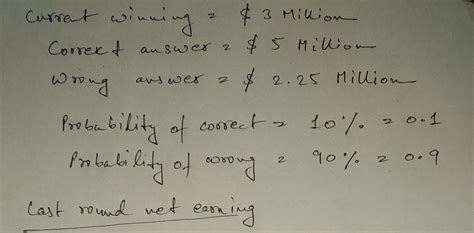 Current winning = $ 3 Million
Correct answer = $ 5 Million
Wrong answer = $ 2.25 Million
Probability of correct = 10% = 0.1
Probability of wrong = 90% = 0.9
Last round net earning